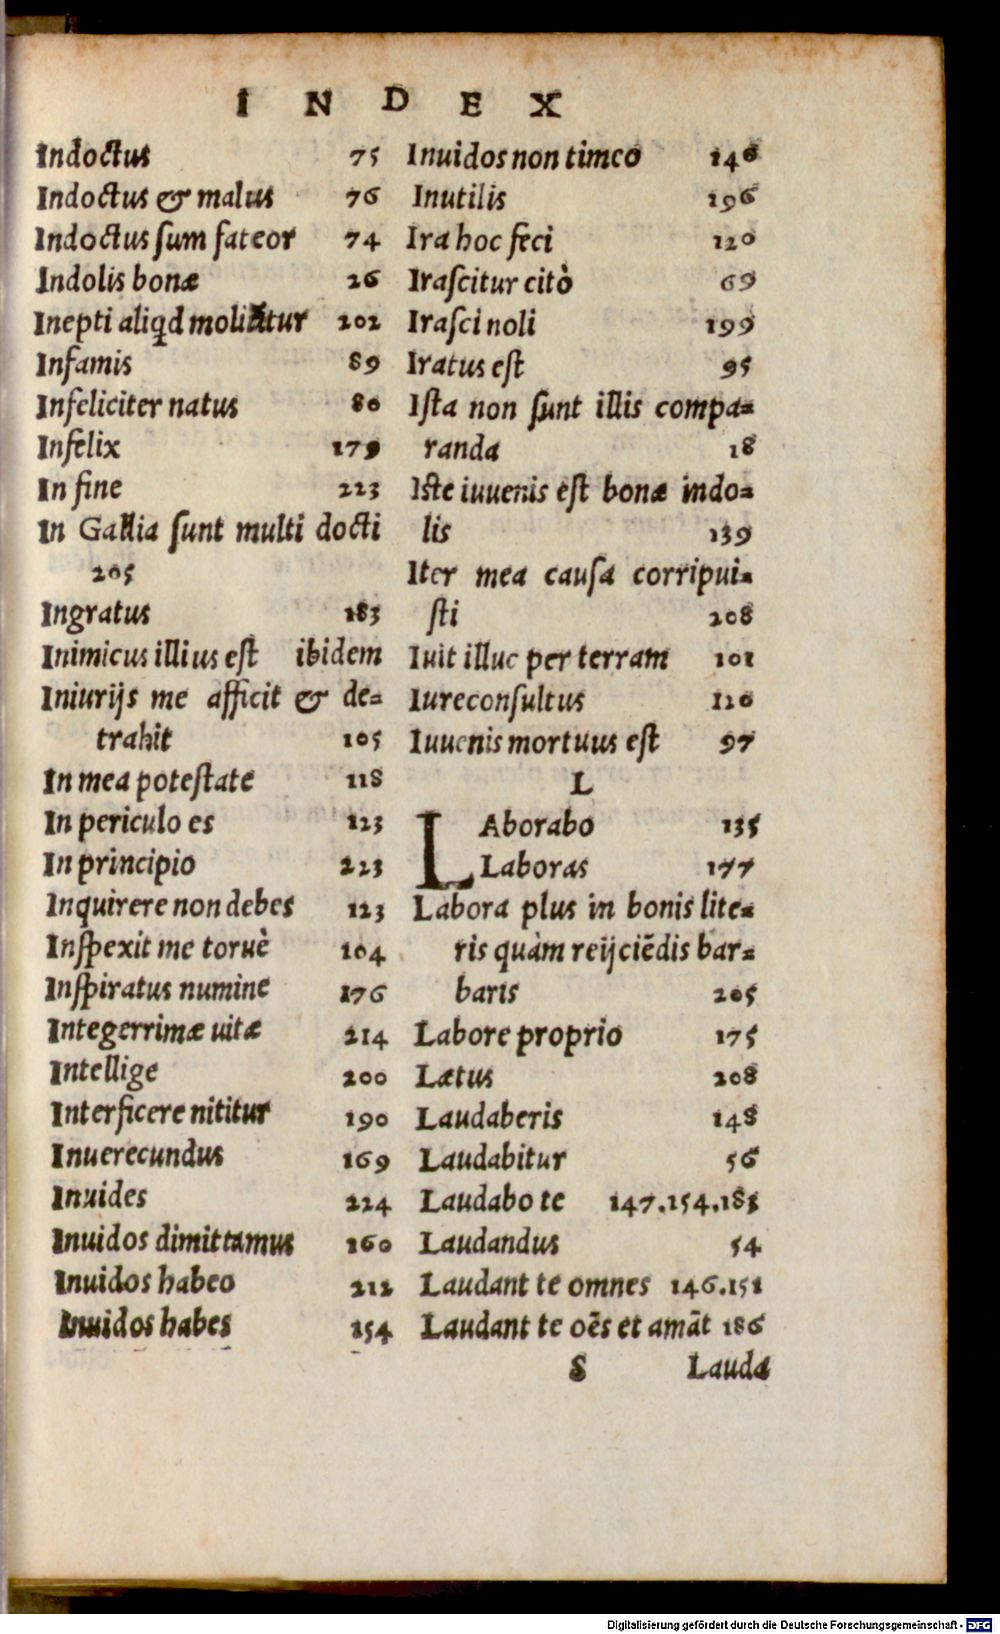 INDEX
Indoctus 75
Indoctus & malus 76
Indoctus sum fateor 74
Indolis bonæ 26
Inepti aliqd molitur 202
Infamis 89
Infeliciter natus 80
Infelix 179
In fine 223
In Gallia sunt multi docti
205
Ingratus 183
Inimicus illius est ibidem
Iniurijs me afficit & de-
trahit 105
In mea potestate 118
In periculo es 123
In principio 223
Inquirere non debes 123
Inspexit me toruè 104
Inspiratus numine 176
Integerrimæ uitæ 214
Intellige 200
Interficere nititur 190
Inuerecundus 169
Inuides 224
Inuidos dimittamus 160
Inuidos habeo 212
Inuidos habes 154
Inuidos non timeo 146
Inutilis 196
Ira hoc feci 120
Irascitur citò 69
Irasci noli 199
Iratus est 95
Ista non sunt illis compa-
randa 18
Iste iuuenis est bonæ indo-
lis 139
Iter mea causa corripui-
sti 208
Iuit illuc per terram 101
Iureconsultus 126
Iuuenis mortuus est 97
L
LAborabo 135
Laboras 177
Labora plus in bonis lite-
ris quàm reijciẽdis bar-
baris 205
Labore proprio 175
Lætus 208
Laudaberis 148
Laudabitur 56
Laudabo te 147.154.183
Laudandus 54
Laudant te omnes 146.151
Laudant te oẽs et amãt 186
S Lauda
Digitalisierung gefördert durch die Deutsche Forschungsgemeinschaft - DFG